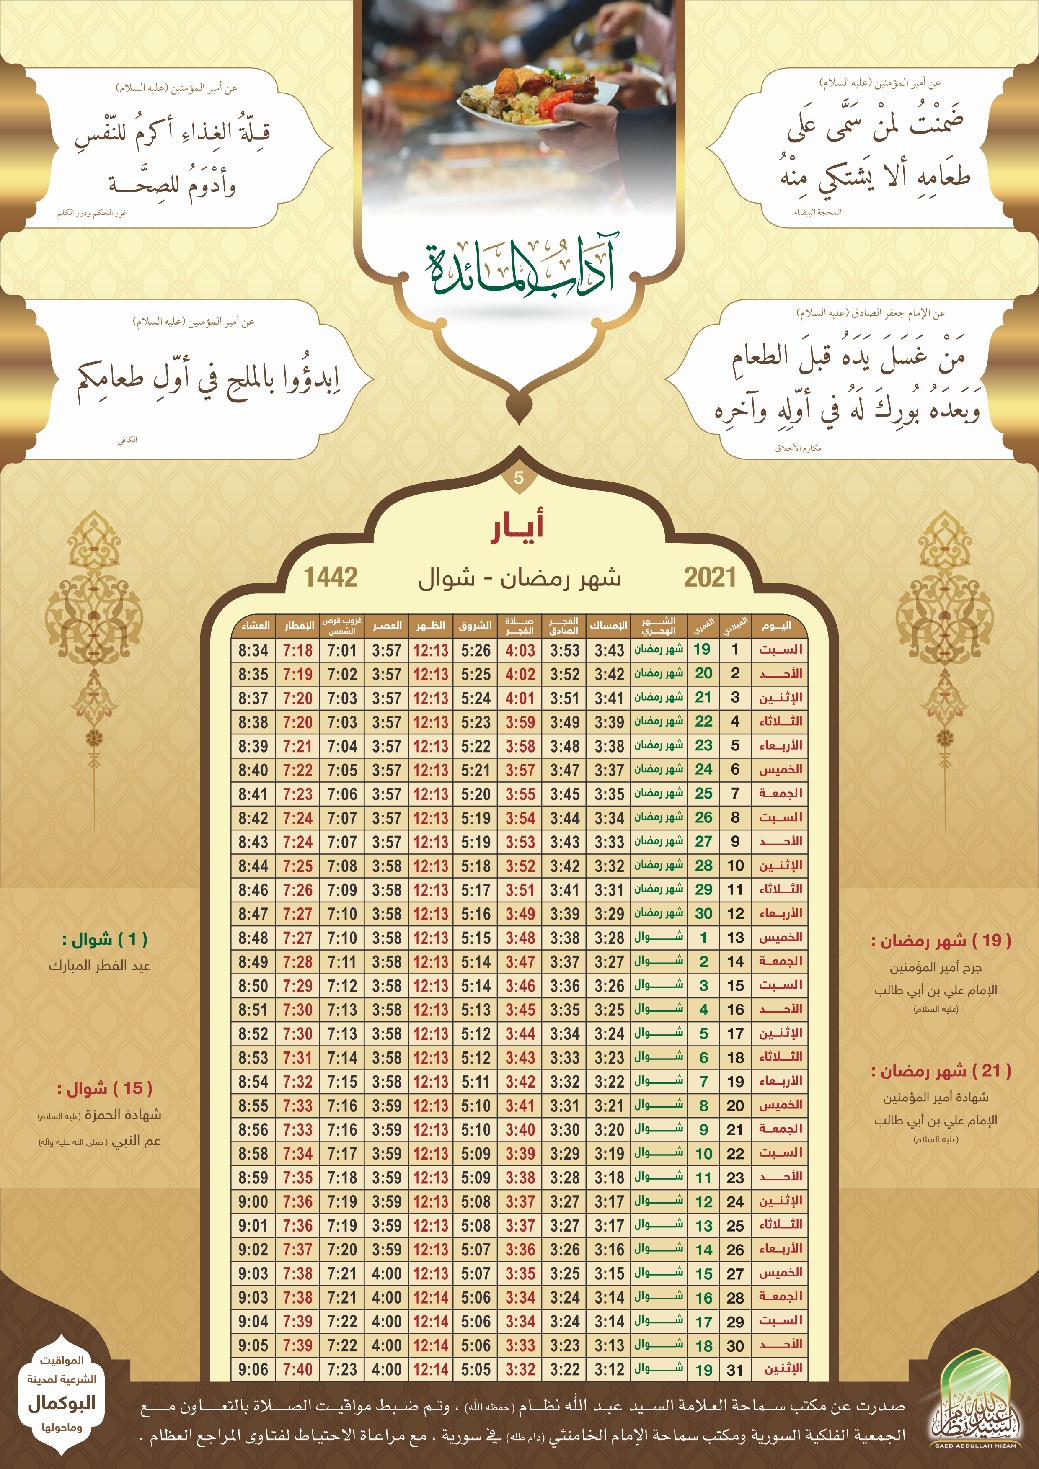 عن أمير المؤمنين (عليه السلام)
ضَمنْتُ لمنْ سَمَّى عَلَى
طعَامِهِ ألا يَشتكي مِنْهُ
المحجة البيضاء
عن أمير المؤمنين (عليه السلام)
قـِلّةُ الغِذاءِ أكرمُ للنّفْسِ
وأدْوَمُ للصِحَّـــة
غرر الحكم ودرر الكلم
آدابُ المائدة
عن الإمام جعفر الصادق (عليه السلام)
مَنْ غَسَلَ يَدَهُ قبلَ الطعامِ
وَبَعدَهُ بُورِكَ لَهُ في أوّلِهِ وآخرِه
مكارم الأخلاق
عن أمير المؤمنين (عليه السلام)
اِبدؤُوا بالملحِ في أوّلِ طعامِكم
الكافي
5
أيــار
2021 شهر رمضان - شوال 1442
اليــوم الميلادي القمري الشــهر الهجـري الإمساك الفجـر الصادق صـلاة الفجـر الشروق الظـهر العصـر غروب قرص الشمس الإفطار العشاء
السـبت 1 19 شهر رمضان 3:43 3:53 4:03 5:26 12:13 3:57 7:01 7:18 8:34
الأحــد 2 20 شهر رمضان 3:42 3:52 4:02 5:25 12:13 3:57 7:02 7:19 8:35
الإثنـين 3 21 شهر رمضان 3:41 3:51 4:01 5:24 12:13 3:57 7:03 7:20 8:37
الثـلاثاء 4 22 شهر رمضان 3:39 3:49 3:59 5:23 12:13 3:57 7:03 7:20 8:38
الأربـعاء 5 23 شهر رمضان 3:38 3:48 3:58 5:22 12:13 3:57 7:04 7:21 8:39
الخميس 6 24 شهر رمضان 3:37 3:47 3:57 5:21 12:13 3:57 7:05 7:22 8:40
الجمعـة 7 25 شهر رمضان 3:35 3:45 3:55 5:20 12:13 3:57 7:06 7:23 8:41
السـبت 8 26 شهر رمضان 3:34 3:44 3:54 5:19 12:13 3:57 7:07 7:24 8:42
الأحــد 9 27 شهر رمضان 3:33 3:43 3:53 5:19 12:13 3:57 7:07 7:24 8:43
الإثنـين 10 28 شهر رمضان 3:32 3:42 3:52 5:18 12:13 3:58 7:08 7:25 8:44
الثـلاثاء 11 29 شهر رمضان 3:31 3:41 3:51 5:17 12:13 3:58 7:09 7:26 8:46
الأربـعاء 12 30 شهر رمضان 3:29 3:39 3:49 5:16 12:13 3:58 7:10 7:27 8:47
الخميس 13 1 شـــوال 3:28 3:38 3:48 5:15 12:13 3:58 7:10 7:27 8:48
الجمعـة 14 2 شـــوال 3:27 3:37 3:47 5:14 12:13 3:58 7:11 7:28 8:49
السـبت 15 3 شـــوال 3:26 3:36 3:46 5:14 12:13 3:58 7:12 7:29 8:50
الأحــد 16 4 شـــوال 3:25 3:35 3:45 5:13 12:13 3:58 7:13 7:30 8:51
الإثنـين 17 5 شـــوال 3:24 3:34 3:44 5:12 12:13 3:58 7:13 7:30 8:52
الثـلاثاء 18 6 شـــوال 3:23 3:33 3:43 5:12 12:13 3:58 7:14 7:31 8:53
الأربـعاء 19 7 شـــوال 3:22 3:32 3:42 5:11 12:13 3:58 7:15 7:32 8:54
الخميس 20 8 شـــوال 3:21 3:31 3:41 5:10 12:13 3:59 7:16 7:33 8:55
الجمعـة 21 9 شـــوال 3:20 3:30 3:40 5:10 12:13 3:59 7:16 7:33 8:56
السـبت 22 10 شـــوال 3:19 3:29 3:39 5:09 12:13 3:59 7:17 7:34 8:58
الأحــد 23 11 شـــوال 3:18 3:28 3:38 5:09 12:13 3:59 7:18 7:35 8:59
الإثنـين 24 12 شـــوال 3:17 3:27 3:37 5:08 12:13 3:59 7:19 7:36 9:00
الثـلاثاء 25 13 شـــوال 3:17 3:27 3:37 5:08 12:13 3:59 7:19 7:36 9:01
الأربـعاء 26 14 شـــوال 3:16 3:26 3:36 5:07 12:13 3:59 7:20 7:37 9:02
الخميس 27 15 شـــوال 3:15 3:25 3:35 5:07 12:13 4:00 7:21 7:38 9:03
الجمعـة 28 16 شـــوال 3:14 3:24 3:34 5:06 12:14 4:00 7:21 7:38 9:03
السـبت 29 17 شـــوال 3:14 3:24 3:34 5:06 12:14 4:00 7:22 7:39 9:04
الأحــد 30 18 شـــوال 3:13 3:23 3:33 5:06 12:14 4:00 7:22 7:39 9:05
الإثنـين 31 19 شـــوال 3:12 3:22 3:32 5:05 12:14 4:00 7:23 7:40 9:06
( 19 ) شهر رمضان :
جرح أمير المؤمنين
الإمام علي بن أبي طالب
(عليه السلام)
( 21 ) شهر رمضان :
شهادة أمير المؤمنين
الإمام علي بن أبي طالب
(عليه السلام)
( 1 ) شوال :
عيد الفطر المبارك
( 15 ) شوال :
شهادة الحمزة (عليه السلام)
عم النبي (صلى الله عليه وآله)
المواقيت
الشرعية لمدينة
البوكمال
وماحولها
صدرت عن مكتب سماحة العلامة السيد عبد الله نظـام (حفظه الله) ، وتـم ضبـط مواقيـت الصـلاة بالتعـاون مـع
الجمعية الفلكية السورية ومكتب سماحة الإمام الخامنئي (دام ظله) في سورية ، مع مراعاة الاحتياط لفتاوى المراجع العظام .
SAED ABDULLAH NIZAM